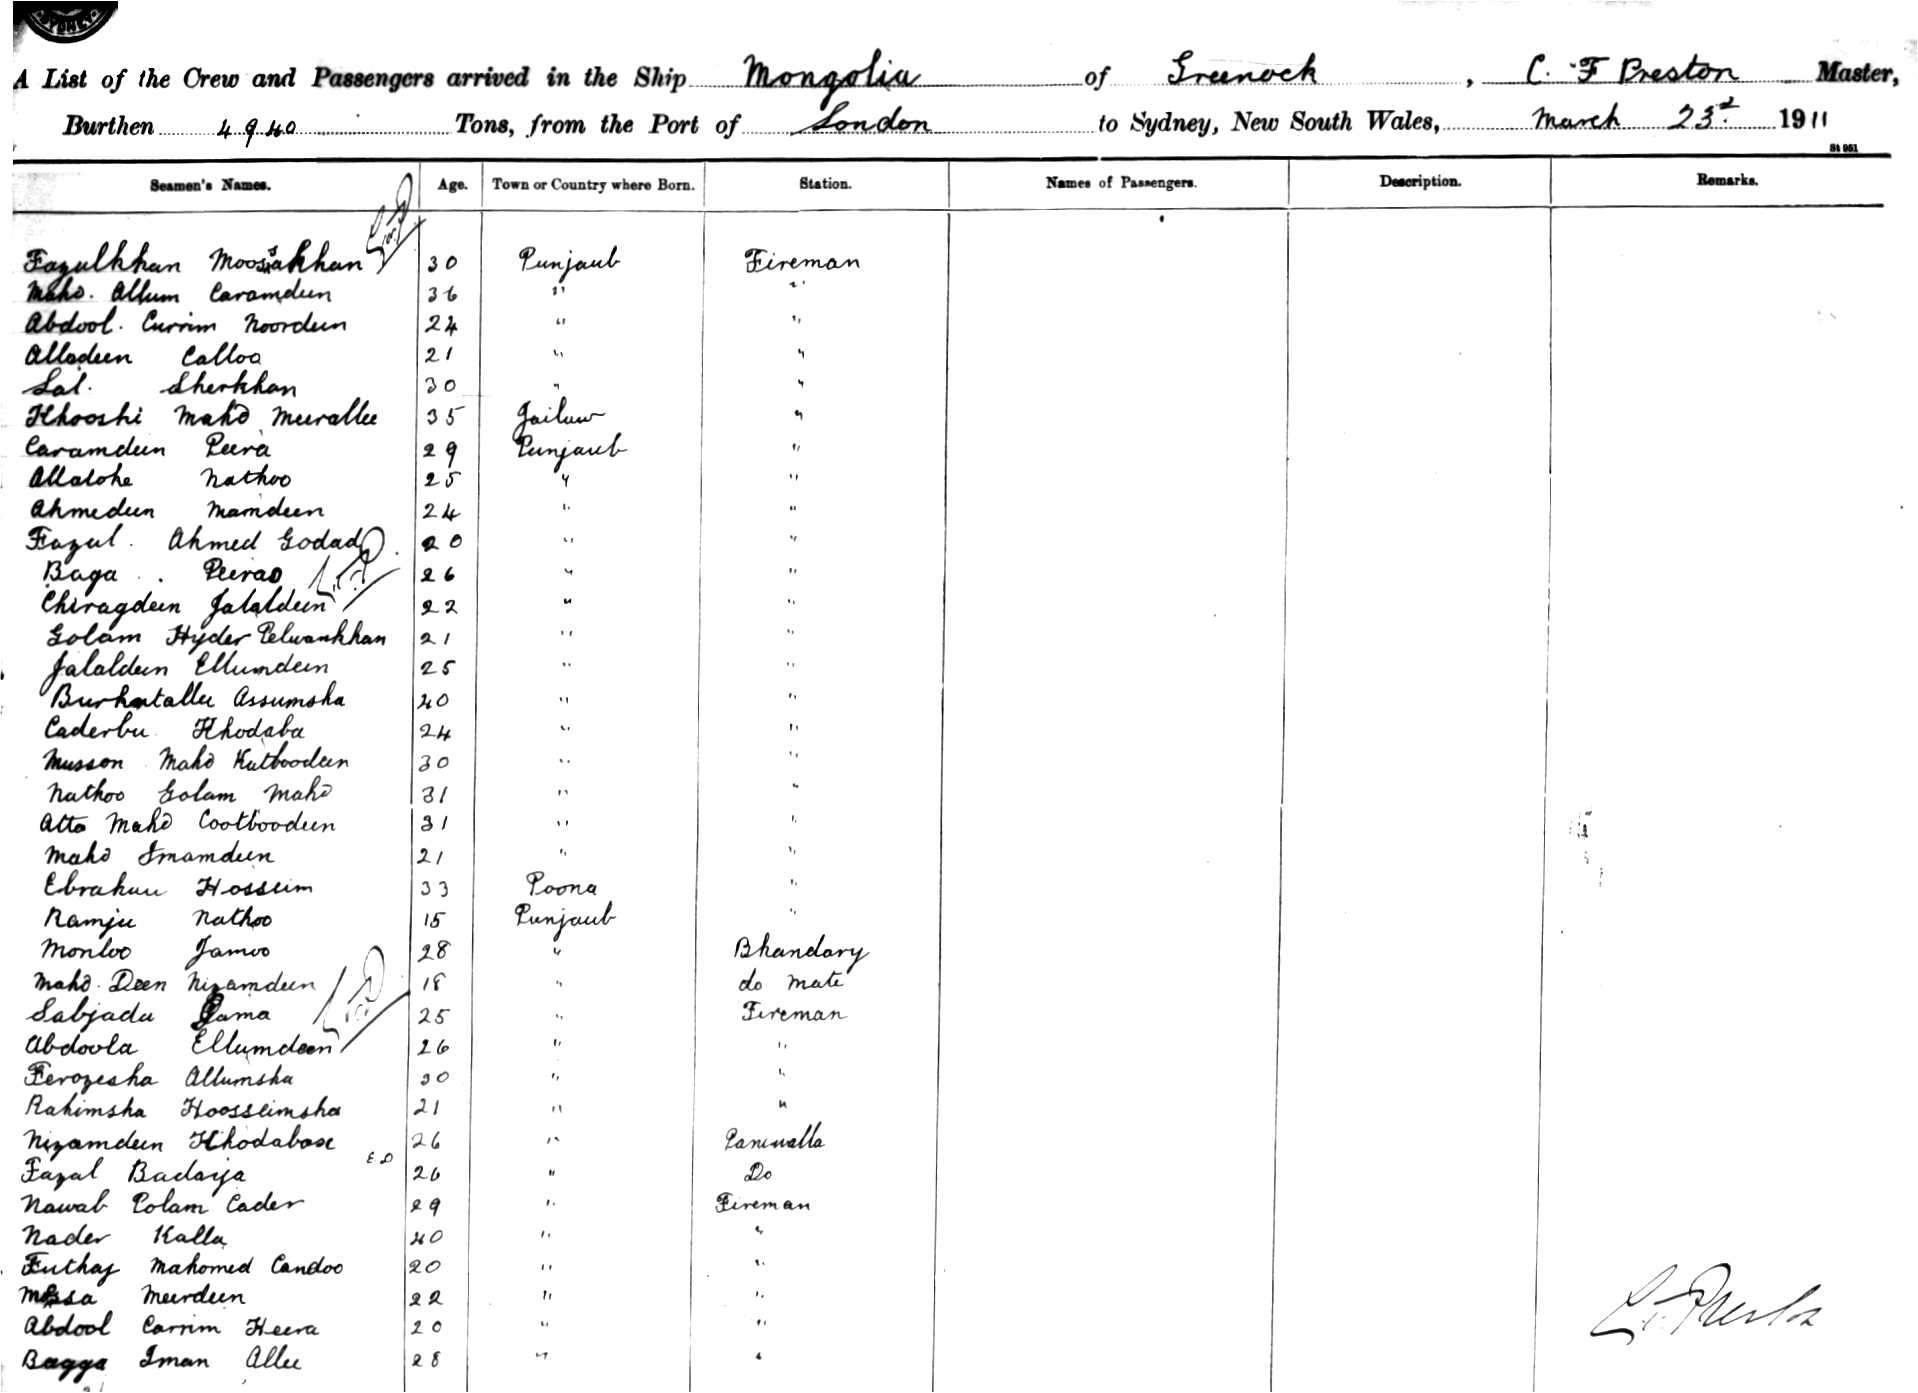 SYDNEY
A List of the Crew and Passengers arrived in the Ship Mongolia of Greenock, C. F Preston Master,
Burthen 4940 Tons, from the Port of London to Sydney, New South Wales, March 23d. 1911
St 951
Seamen's Names. Age. Town or Country where Born. Station. Names of Passengers. Description. Remarks.
Fazulkhan Moosakhan 30 Punjaub Fireman
Mahd. Allum Caramdeen 36 " "
Abdool. Currim Noordeen 24 " "
Alladeen Calloo 21 " "
Lal. Sherkhan 30 " "
Khooshi Mahd Meerallee 35 "
Caramdeen Peera 29 Punjaub "
Nathoo 25 " "
Ahmedeen Mamdeen 24 " "
Fazul. Ahmed Godad 20 " "
Baga . 26 " "
Chiragdeen Jalaldeen 22 " "
Golam Hyder Pelwankhan 21 " "
Jalaldeen Ellumdeen 25 " "
Burkatallee Assumsha 40 " "
Khodaba 24 " "
Musson Mahd Kutboodeen 30 " "
Nathoo Golam Mahd 31 " "
Atta Mahd Cootboodeen 31 " "
Mahd Imamdeen 21 " "
Hossein 33 Poona "
Ramju Nathoo 15 Punjaub "
Jamoo 28 " Bhandary
Mahd. Deen Nizamdeen 18 " do mate
25 " Fireman
Abdoola Ellumdeen 26 " "
Ferozesha Allumsha 30 " "
Rahimsha Hoosseinsha 21 " "
Nizamdeen Khodabax 26 " Paniwalla
Fazal 26 " Do
Nawab Cader 29 " Fireman
Nader Kalla 40 " "
Mahomed Candoo 20 " "
Meerdeen 22 " "
Abdool Carrim Heera 20 " "
Bagga Iman Allee 28 " "
C. F. Preston